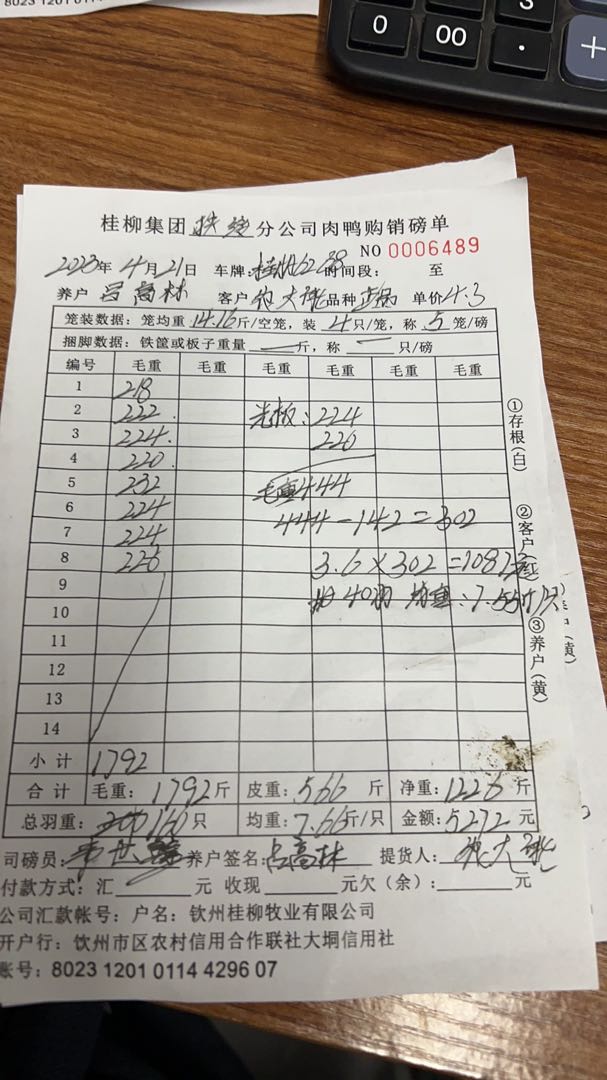 8023 1201 0114
3
0 00 · +
桂柳集团 分公司肉鸭购销磅单
NO 0006489
2023年4月21日 车牌: 时间段: 至
养户 吕高林 客户 农大 品种 单价4.3
笼装数据: 笼均重14.16斤/空笼,装4只/笼,称5笼/磅
捆脚数据: 铁筐或板子重量 — 斤,称 — 只/磅
编号 毛重 毛重 毛重 毛重 毛重
1 218
2 222. 光板: 224
3 224. 220
4 220.
5 232 毛重444
6 224 444-142=302
7 224
8 226 3.6×302=1087元
9 40羽 均重: 7.55斤/只
10
11
12
13
14
小计 1792
合计 毛重: 1792斤 皮重: 566 斤 净重: 1226斤
总羽重: 160只 均重: 7.66斤/只 金额: 5272元
司磅员: 养户签名: 吕高林 提货人:
付款方式: 汇 元 收现 元欠(余): 元
公司汇款帐号: 户名: 钦州桂柳牧业有限公司
开户行: 钦州市区农村信用合作联社大垌信用社
账号: 8023 1201 0114 4296 07
①存根(白)
②客户(红)
③养户(黄)
(黄)